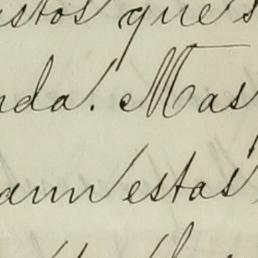 estos que s
nda. Mas
aun estas